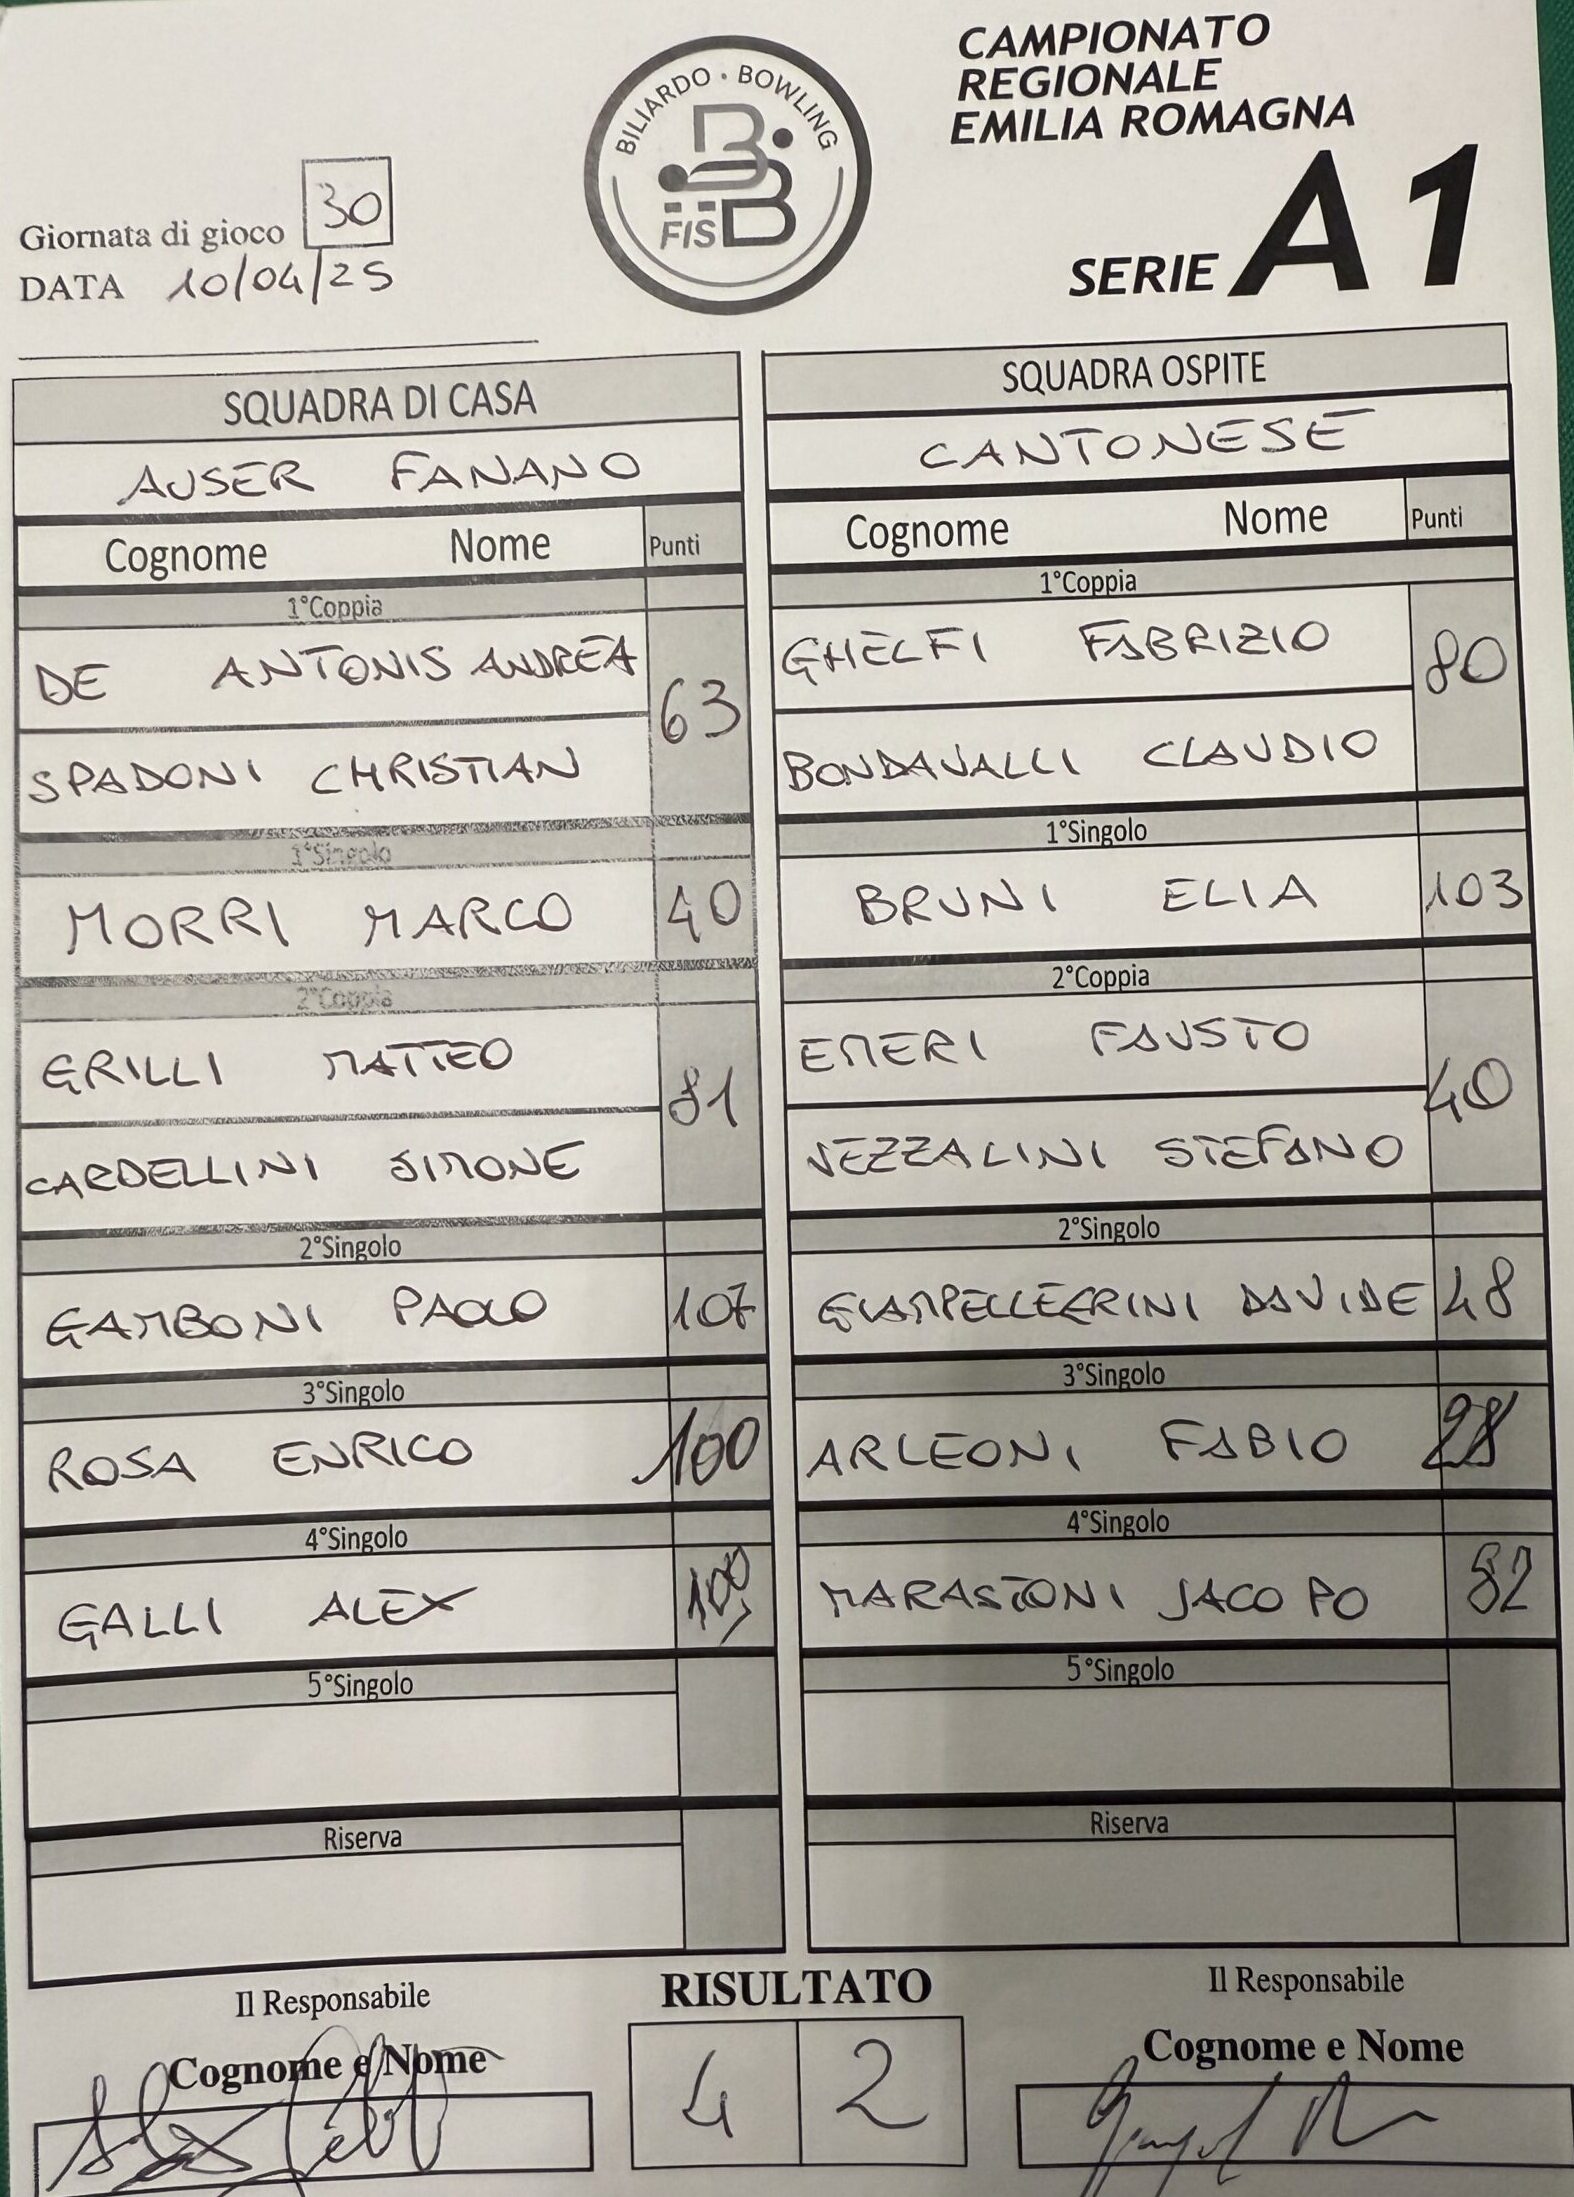 BILIARDO • BOWLING
FISBB
CAMPIONATO
REGIONALE
EMILIA ROMAGNA
SERIE A1
Giornata di gioco 30
DATA 10/04/25
SQUADRA DI CASA
AUSER FANANO
Cognome Nome Punti
1°Coppia
DE ANTONIS ANDREA
63
SPADONI CHRISTIAN
1°Singolo
MORRI MARCO 40
2°Coppia
GRILLI MATTEO
81
CARDELLINI SIMONE
2°Singolo
GAMBONI PAOLO 107
3°Singolo
ROSA ENRICO 100
4°Singolo
GALLI ALEX 100
5°Singolo
Riserva
SQUADRA OSPITE
CANTONESE
Cognome Nome Punti
1°Coppia
GHELFI FABRIZIO
80
BONDAVALLI CLAUDIO
1°Singolo
BRUNI ELIA 103
2°Coppia
EMERI FAUSTO
40
VEZZALINI STEFANO
2°Singolo
GIAMPELLEGRINI DAVIDE 48
3°Singolo
ARLEONI FABIO
4°Singolo
MARASTONI JACOPO 82
5°Singolo
Riserva
Il Responsabile
Cognome e Nome
RISULTATO
4 2
Il Responsabile
Cognome e Nome